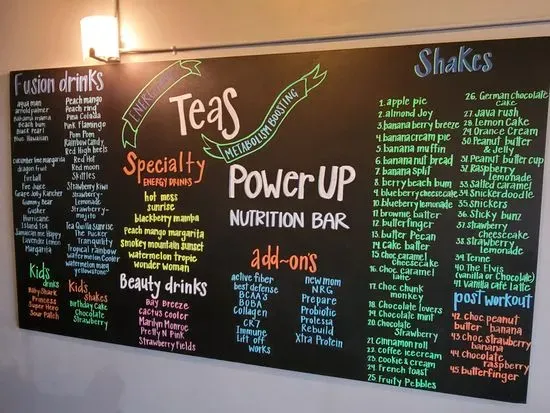 Fusion drinks
aqua man
arnold palmer
Bahama mama
Beach bum
Black Pearl
Blue Hawaiian
cucumber lime margarita
dragon fruit
fireball
Fee Juice
Grape Jolly Rancher
Gummy Bear
Gusher
Hurricane
Island Tea
Jamaican me Happy
Lavender Lemon
Margarita
Peach mango
Peach ring
Pina Colada
Pink Flamingo
Pom Pom
Rainbow Candy
Red High heels
Red Hot
Red moon
Skittles
Strawberry Kiwi
strawberry
Lemonade
Strawberry-
mojito
Tea Quilla Sunrise
Tie Pucker
Tranquility
Tropical rainbow
Watermelon Cooler
Watermelon mama
yellowstone
Kids
drinks
Baby Shark
Princess
Super Hero
Sour Patch
Kids
shakes
Birthday Cake
Chocolate
Strawberry
ENERGIZING
TEAS
METABOLISM BOOSTING
Specialty
ENERGY DRINKS
hot mess
sunrise
blackberry mamba
Peach mango margarita
Smokey mountain sunset
watermelon tropic
wonder woman
Beauty drinks
Bay Breeze
cactus cooler
Marilyn Monroe
Pretty N Pink
Strawberry Fields
POWER UP
NUTRITION BAR
add-on's
active fiber
best defense
BCAA
BOBA
Collagen
CR7
Immune
Lift off
works
new mom
NRG
Prepare
Prolong
Probiotic
Prolessa
Rebuild
Xtra Protein
Shakes
1. apple pie
2. almond Joy
3. banana berry breeze
4. banana cream pie
5. banana muffin
6. banana nut bread
7. banana split
8. berry beach bum
9. blueberry cheesecake
10. blueberry lemonade
11. brownie batter
12. butterfinger
13. butter Pecan
14. cake batter
15. choc. caramel
Cheesecake
16. Choc. caramel
latte
17. choc. chunk
monkey
18. Chocolate lovers
19. Chocolate mint
20. Chocolate
Strawberry
21. Cinnamon roll
22. coffee icecream
23. cookie & cream
24. French toast
25. Fruity Pebbles
26. German chocolate
cake
27. Java rush
28. Lemon Cake
29. Orange Cream
30. Peanut butter
& Jelly
31. Peanut butter cup
32. Raspberry
lemonade
33. Salted caramel
34. Snickerdoodle
35. Snickers
36. Sticky bunz
37. Strawberry
cheesecake
38. Strawberry
lemonade
40. The Elvis
(vanilla or Chocolate)
41. Vanilla cafe latte
post workout
42. choc. peanut
butter banana
43. choc. strawberry
banana
44. chocolate
raspberry
45. butterfinger